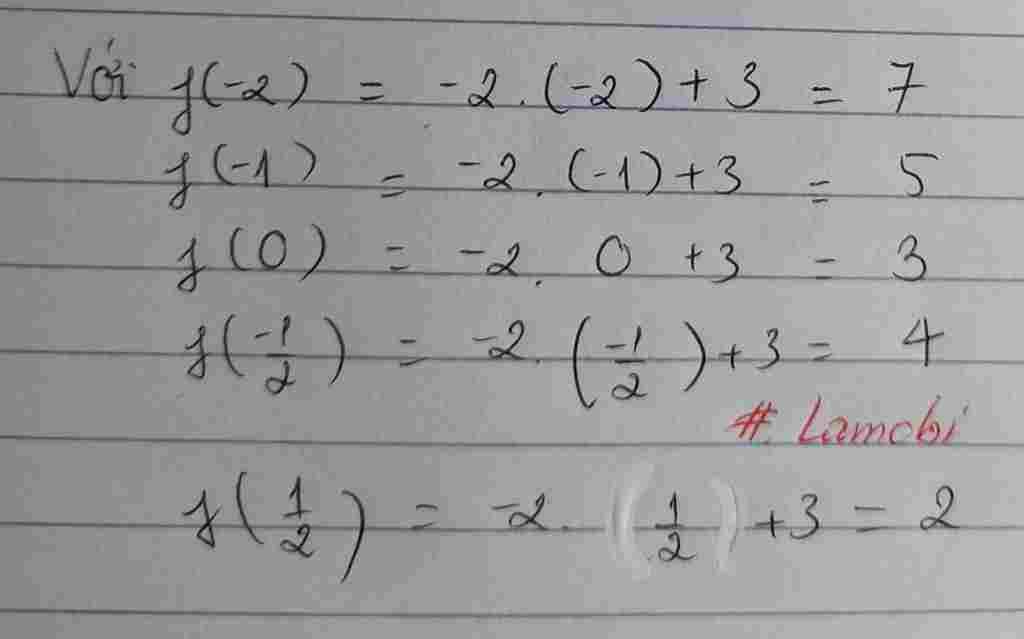 Với f(-2) = -2.(-2)+3 = 7
f(-1) = -2.(-1)+3 = 5
f(0) = -2. 0 +3 = 3
f(-1/2) = -2.(-1/2)+3 = 4
#. Lamobi
f(1/2) = -2.(1/2)+3 = 2